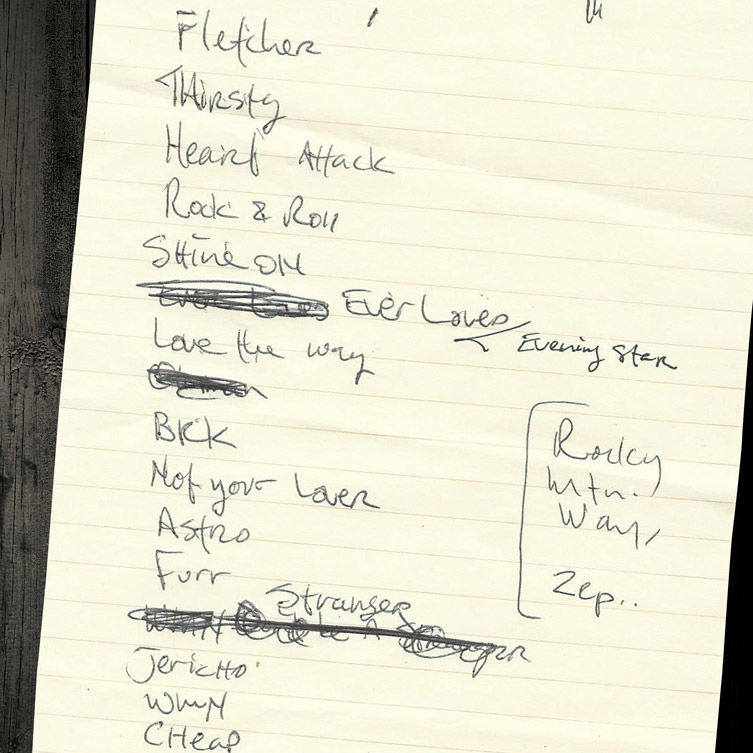 Fletcher
Thirsty
Heart Attack
Rock & Roll
Shine ON
Ever Loves
Evening Star
Love the way
BKK
Not your Lover
Astro
Furr
Stranger
Jericho
WMN
CHeap
Rocky
Mtn.
Way,
Zep..